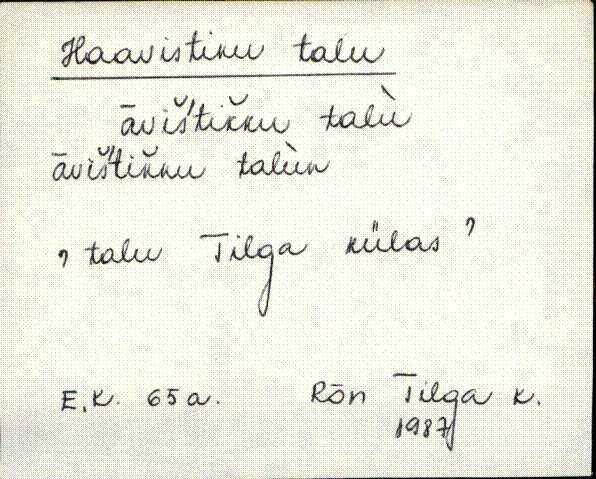 Haavistiku talu
āviš́tik̆ku talù
āviš́tik̆ku talùn
, talu Tilga külas ’
E.K. 65 a. Rōn Tilga k.
1987